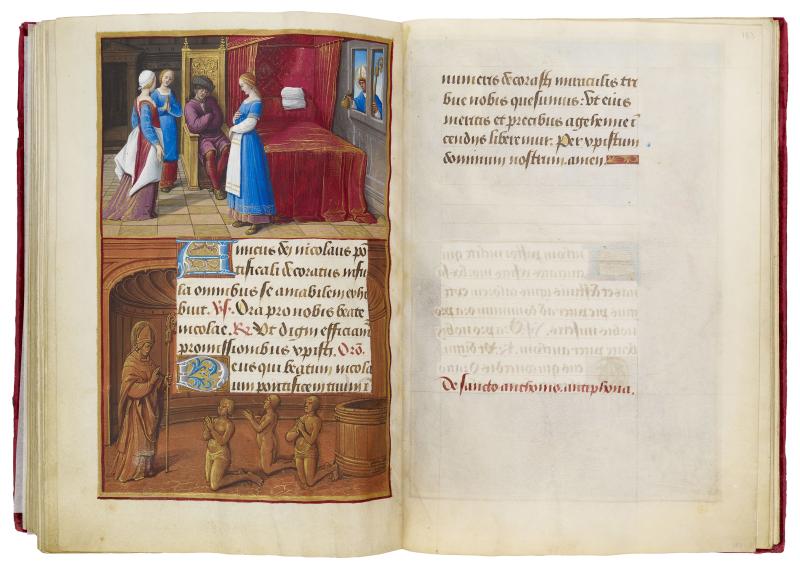 Amicus dei nicolaus po
tificali decoratus infu
la omnibus se amabilem exhi
buit. Vs. Ora pro nobis beate
nicolae. R. Vt digni efficiam
promissionibus xpisti. Oro.
Deus qui beatum nicola
um pontificem tuum i
numeris decorasti miraculis tri
bue nobis quesumus: Vt eius
meritis et precibus a gehenne i
cendijs liberemur. Per xpistum
dominum nostrum. amen.
De sancto anthonio. antiphona.